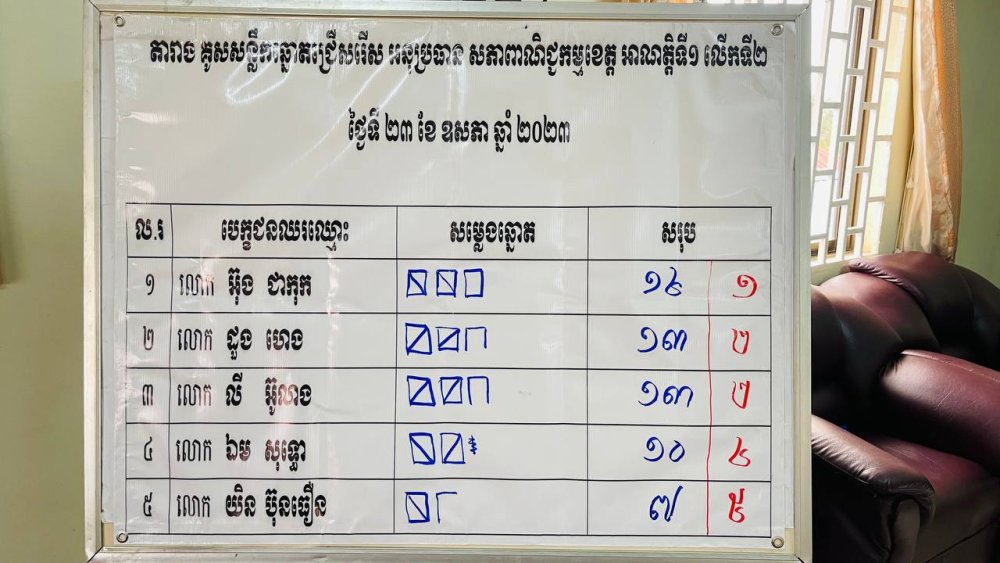 តារាង គូសសន្លឹកឆ្នោតជ្រើសរើស អនុប្រធាន សភាពាណិជ្ជកម្មខេត្ត អាណត្តិទី១ លើកទី២
ថ្ងៃទី ២៣ ខែ ឧសភា ឆ្នាំ ២០២៣
ល.រ បេក្ខជនឈរឈ្មោះ សម្លេងឆ្នោត សរុប
១ លោក អ៊ុង ជាកុក ១៤ ១
២ លោក ដួង ហេង ១៣ ២
៣ លោក លី អ៊ូលាង ១៣ ២
៤ លោក ឯម សុទ្ធោ ១០ ៤
៥ លោក យិន ប៊ុនធឿន ៧ ៥